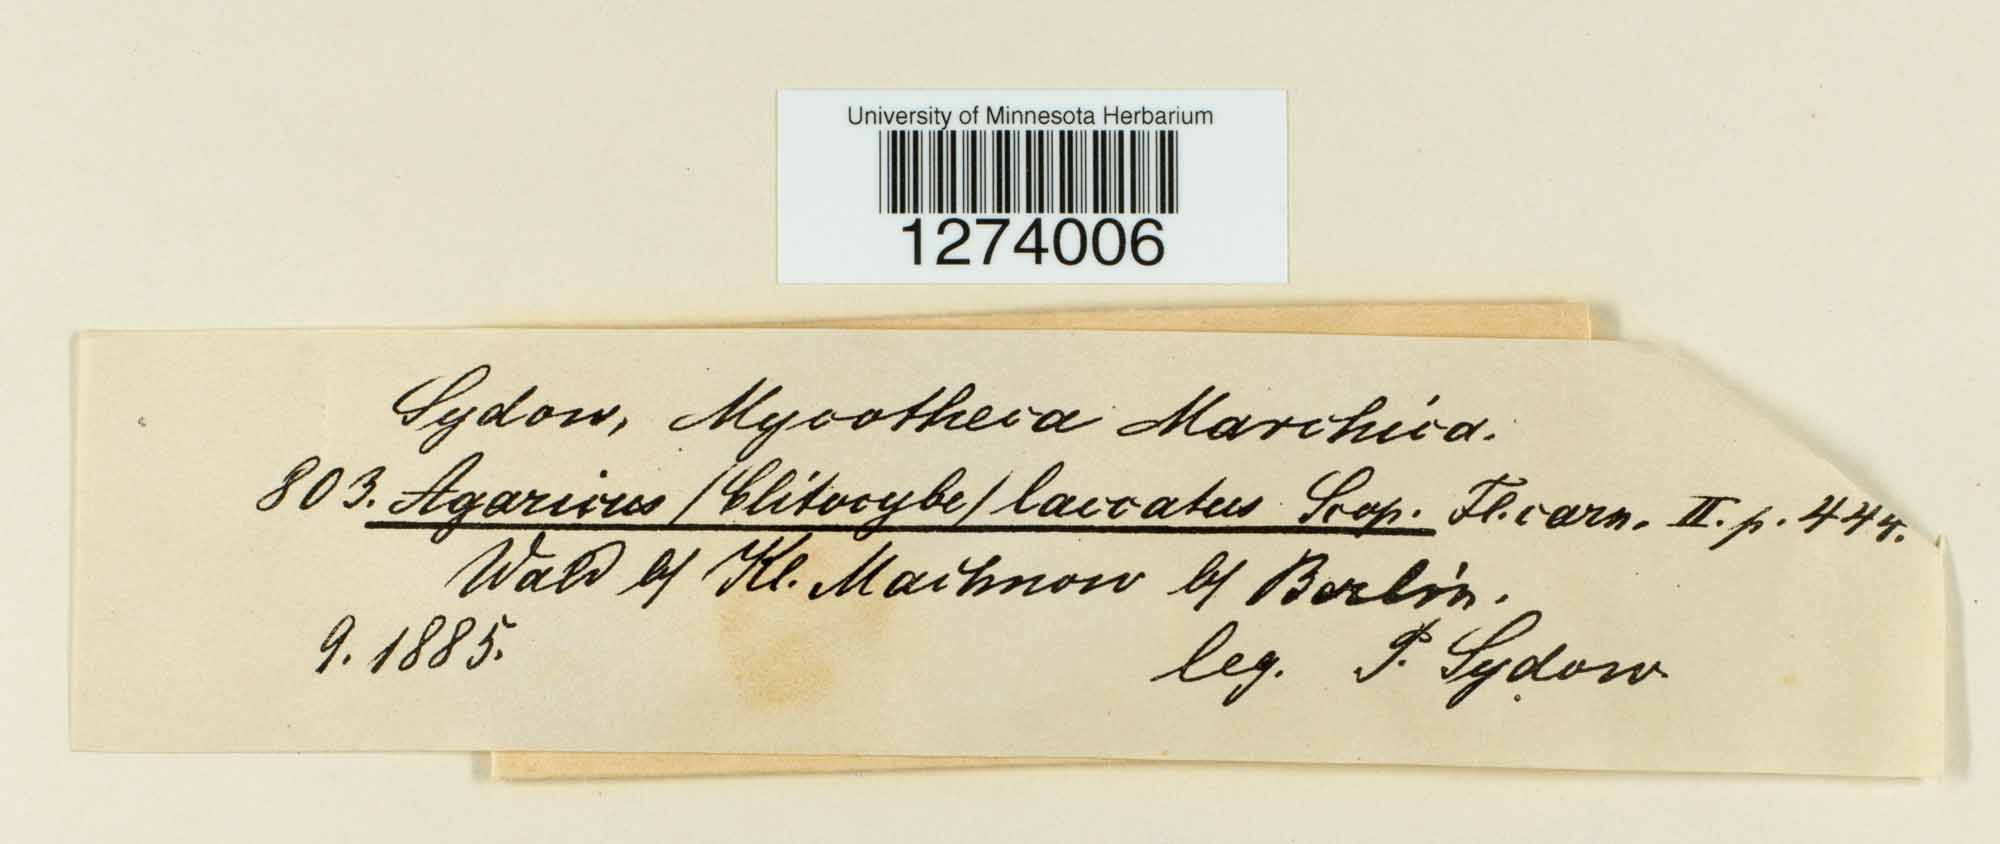 University of Minnesota Herbarium
1274006
Sydow, Mycotheca Marchica.
803. Agaricus /Clitocybe/ laccatus Scop. Fl. carn. II. p. 444.
Wald b/ Kl. Machnow b/ Berlin.
9. 1885.
leg. P. Sydow